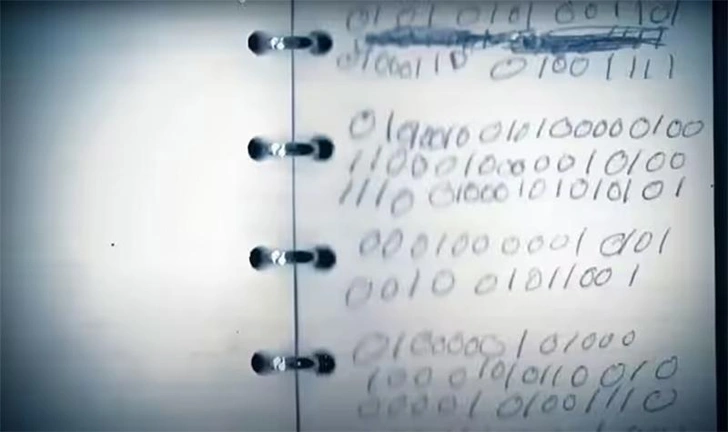 0101 0101 001101
01000110 01001111
01000010 01010000 0100
1100010000010100
1110 01000101010101
0001000001 0101
0010 01011001
0100000101000
100 01010110010
00001 01001110